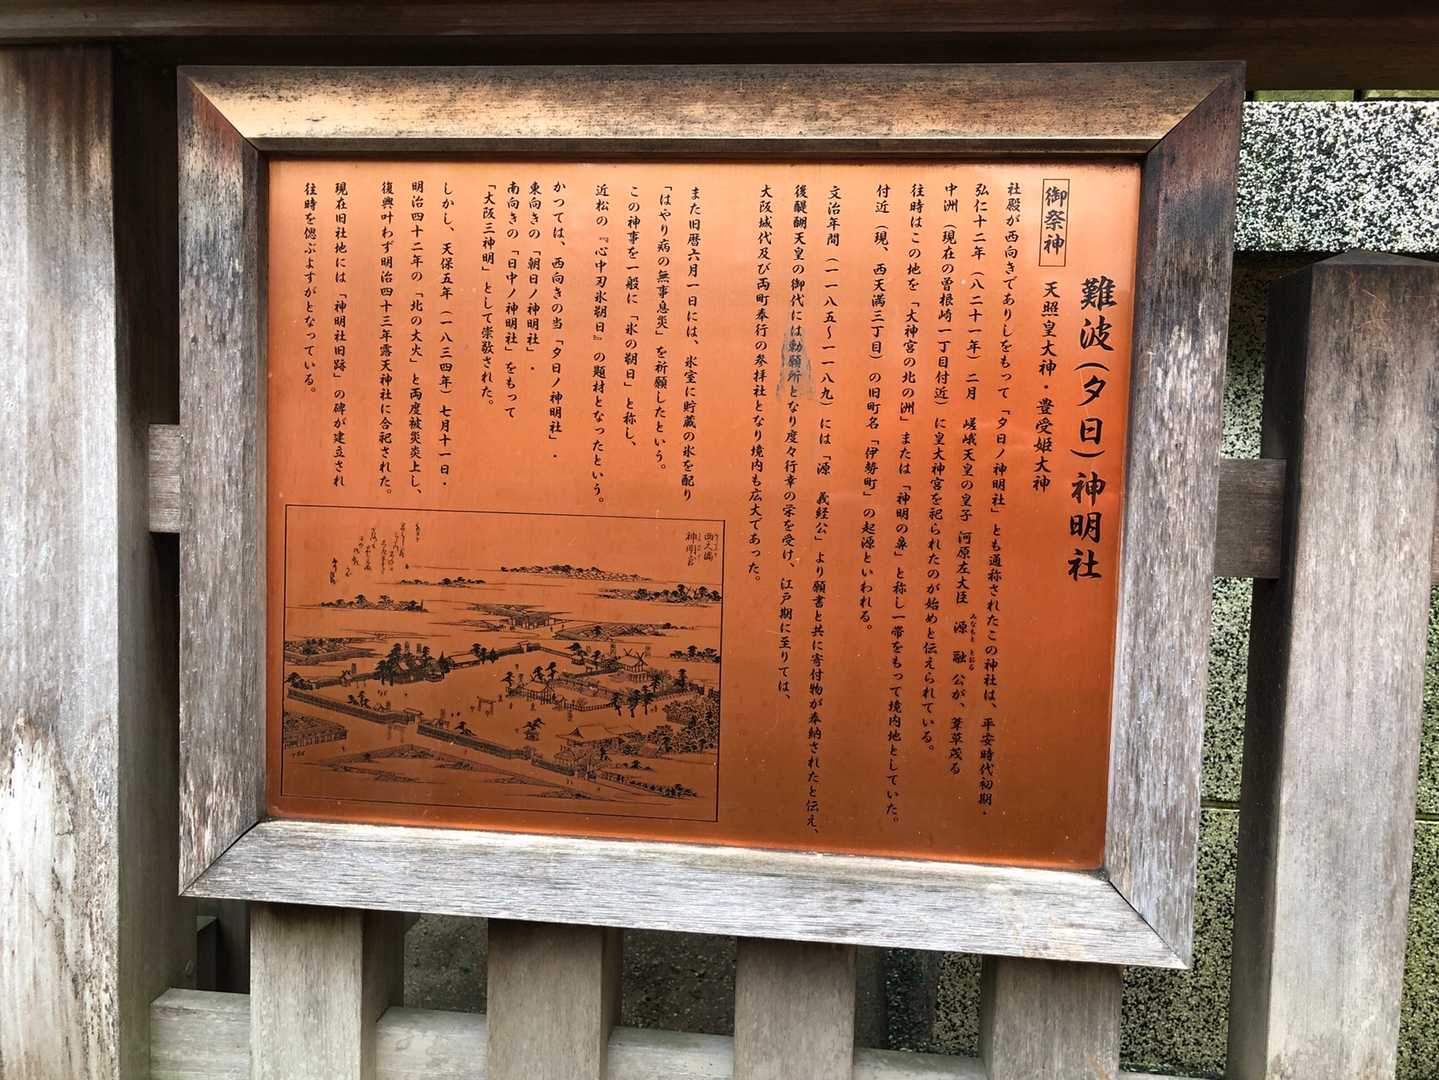 難波(夕日)神明社
御祭神 天照皇大神・豊受姫大神
社殿が西向きでありしをもって「夕日ノ神明社」とも通称されたこの神社は、平安時代初期・
弘仁十二年(八二十一年)二月 嵯峨天皇の皇子 河原左大臣 源 融 公が、葦草茂る
みなもと とおる
中洲(現在の曽根崎一丁目付近)に皇大神宮を祀られたのが始めと伝えられている。
往時はこの地を「大神宮の北の洲」または「神明の鼻」と称し一帯をもって境内地としていた。
付近(現、西天満三丁目)の旧町名「伊勢町」の起源といわれる。
文治年間(一一八五～一一八九)には「源 義経公」より願書と共に寄付物が奉納されたと伝え、
後醍醐天皇の御代には勅願所となり度々行幸の栄を受け、江戸期に至りては、
大阪城代及び両町奉行の参拝社となり境内も広大であった。
また旧暦六月一日には、氷室に貯蔵の氷を配り
「はやり病の無事息災」を祈願したという。
この神事を一般に「氷の朔日」と称し、
近松の『心中刃氷朔日』の題材となったという。
かつては、西向きの当「夕日ノ神明社」・
東向きの「朝日ノ神明社」・
南向きの「日中ノ神明社」をもって
「大阪三神明」として崇敬された。
しかし、天保五年(一八三四年)七月十一日・
明治四十二年の「北の大火」と両度被災炎上し、
復興叶わず明治四十三年露天神社に合祀された。
現在旧社地には「神明社旧跡」の碑が建立され
往時を偲ぶよすがとなっている。
西天満
神明宮